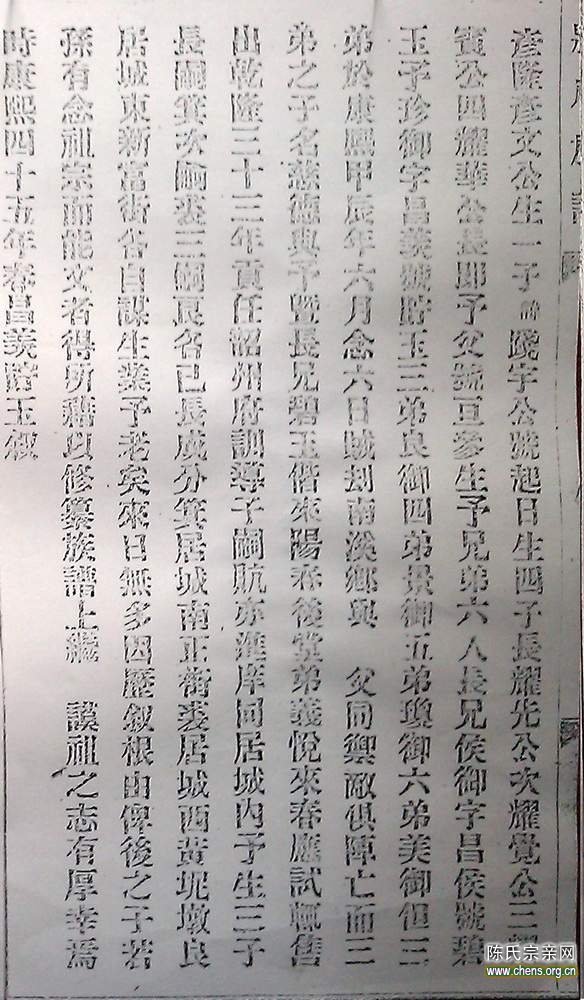 彥隆彥文公生一子諱殘字公號起日生四子長耀先公次耀覺公三耀
賓公四耀華公長卽予父號亘參生予兄弟六人長兄侯御字昌侯號碧
玉予珍御字昌美號踣玉三弟良御四弟景御五弟瓊御六弟美御但三
弟於康熙甲辰年六月念六日賊刦南溪鄉與 父同禦敵俱陣亡而三
弟之子名慈德與予暨長兄碧玉偕來陽春後堂弟義悅來春應試輒售
出乾隆三十三年貢任韶州府訓導子嗣航亦進庠同居城內予生三子
長嗣箕次嗣裘三嗣良名已長成分箕居城南正街裘居城西黃坭墩良
居城東新富街各自謀生業予老矣來日無多因歷叙根由俾後之子若
孫有念祖宗而能文者得所藉以修纂族譜上繼 謨祖之志有厚幸焉
時康熙四十五年春昌美踣玉叙
陈氏宗亲网
www.chens.org.cn